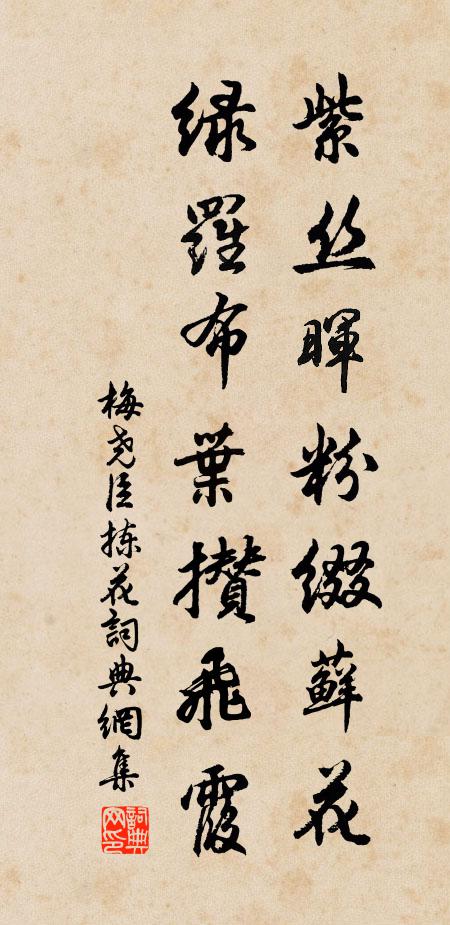 紫丝暉粉缀蘚花
緑羅布葉攅飛霞
梅尧臣拣花詞典網集
詞典网印